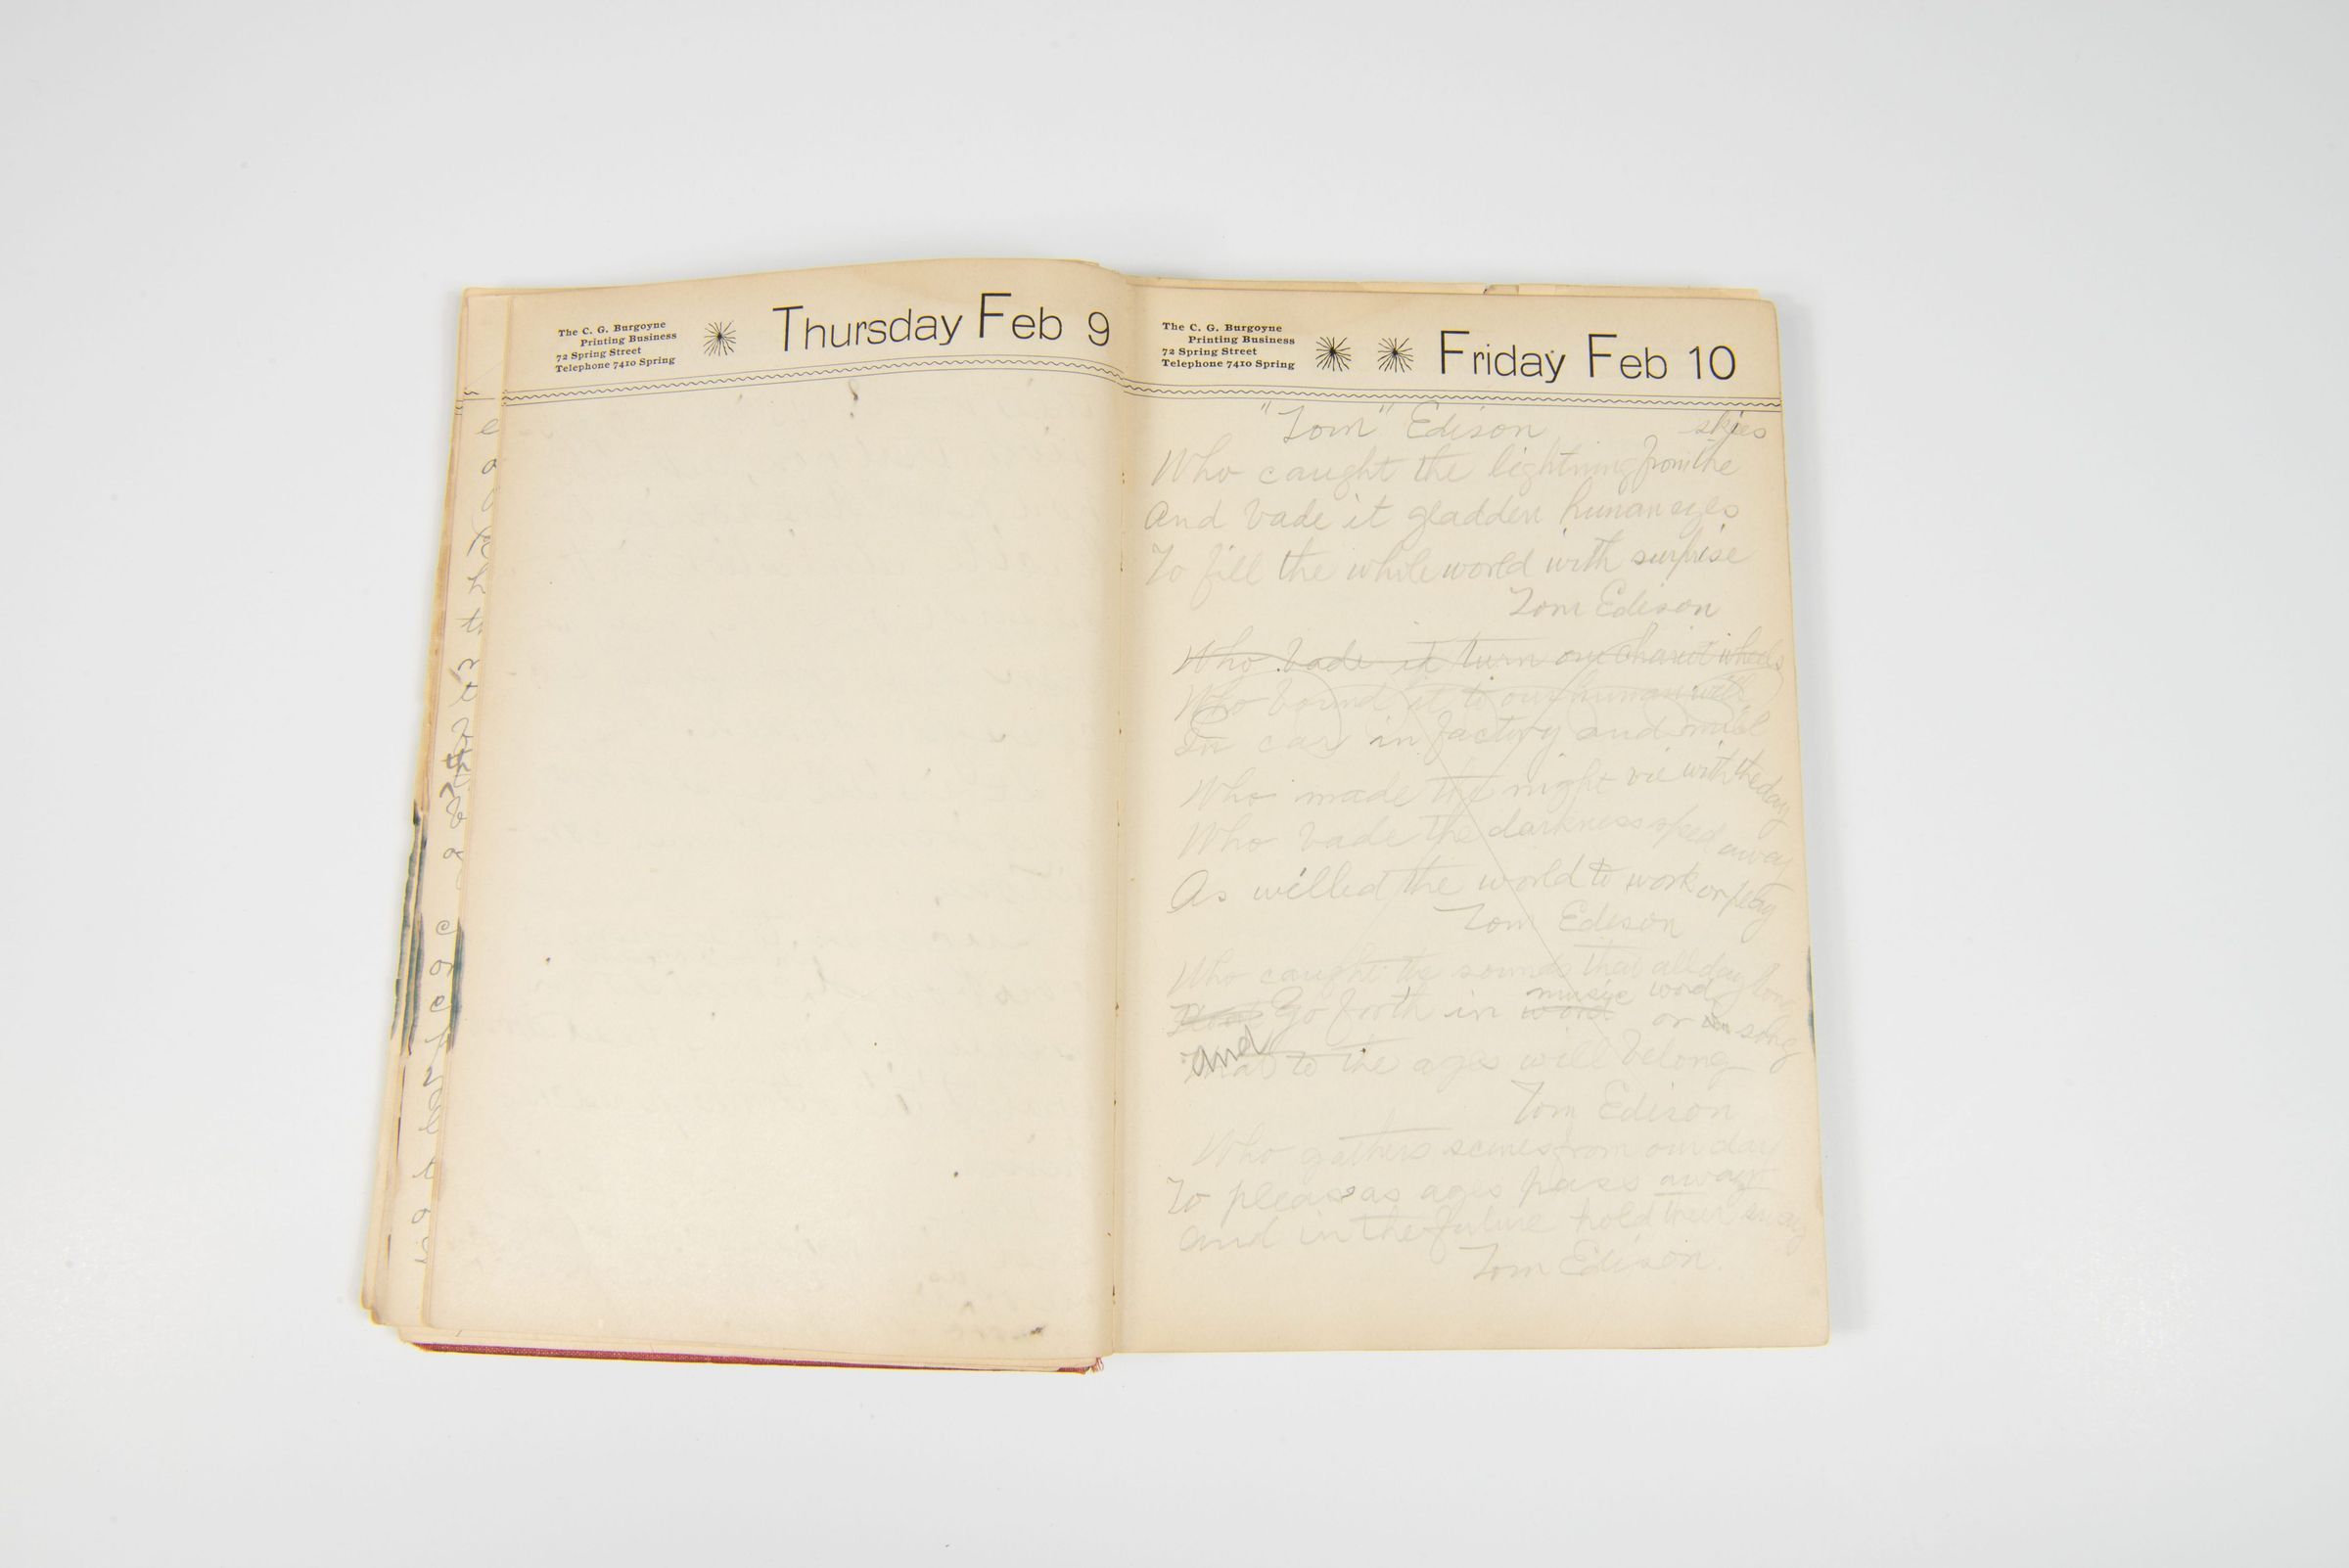 The C. G. Burgoyne
Printing Business
72 Spring Street
Telephone 7410 Spring
Thursday Feb 9
The C. G. Burgoyne
Printing Business
72 Spring Street
Telephone 7410 Spring
Friday Feb 10
"Tom" Edison
skies
Who caught the lightning from the
And bade it gladden human eyes
To fill the whole world with surprise
Tom Edison
Who bade it turn our chariot wheels
Who bound it to our human will
In car in factory and mill
Who made the night vie with the day
Who bade the darkness speed away
As willed the world to work or play
Tom Edison
Who caught the sounds that all day long
music word
Go forth in word or song
and
to the ages will belong
Tom Edison
Who gathers scenes from our day
To please as ages pass away
And in the future hold their sway
Tom Edison.